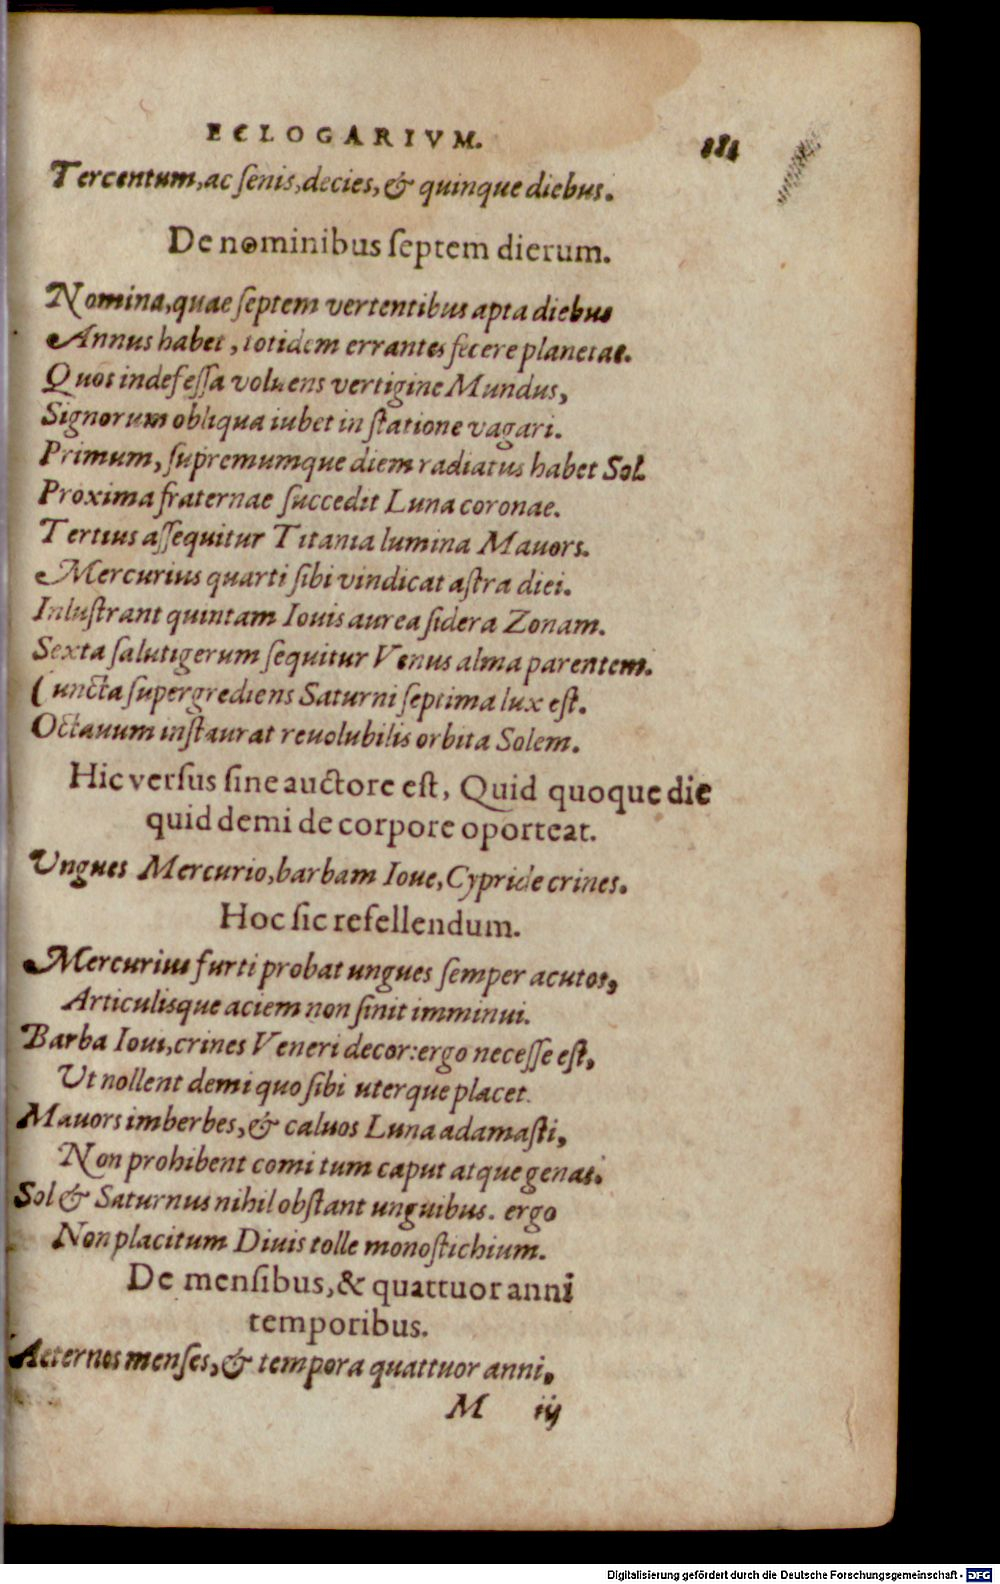 ECLOGARIVM. 181
Tercentum, ac senis, decies, & quinque diebus.
De nominibus septem dierum.
Nomina, quae septem vertentibus apta diebus
Annus habet, totidem errantes fecere planetae.
Quos indefessa voluens vertigine Mundus,
Signorum obliqua iubet in statione vagari.
Primum, supremumque diem radiatus habet Sol.
Proxima fraternae succedit Luna coronae.
Tertius assequitur Titania lumina Mauors.
Mercurius quarti sibi vindicat astra diei.
Inlustrant quintam Iouis aurea sidera Zonam.
Sexta salutigerum sequitur Venus alma parentem.
Cuncta supergrediens Saturni septima lux est.
Octauum instaurat reuolubilis orbita Solem.
Hic versus sine auctore est, Quid quoque die
quid demi de corpore oporteat.
Ungues Mercurio, barbam Ioue, Cypride crines.
Hoc sic refellendum.
Mercurius furti probat ungues semper acutos,
Articulisque aciem non sinit imminui.
Barba Ioui, crines Veneri decor: ergo necesse est,
Ut nollent demi quo sibi uterque placet.
Mauors imberbes, & caluos Luna adamasti,
Non prohibent comi tum caput atque genas.
Sol & Saturnus nihil obstant unguibus. ergo
Non placitum Diuis tolle monostichium.
De mensibus, & quattuor anni
temporibus.
Aeternos menses, & tempora quattuor anni,
M iij
Digitalisierung gefördert durch die Deutsche Forschungsgemeinschaft - DFG